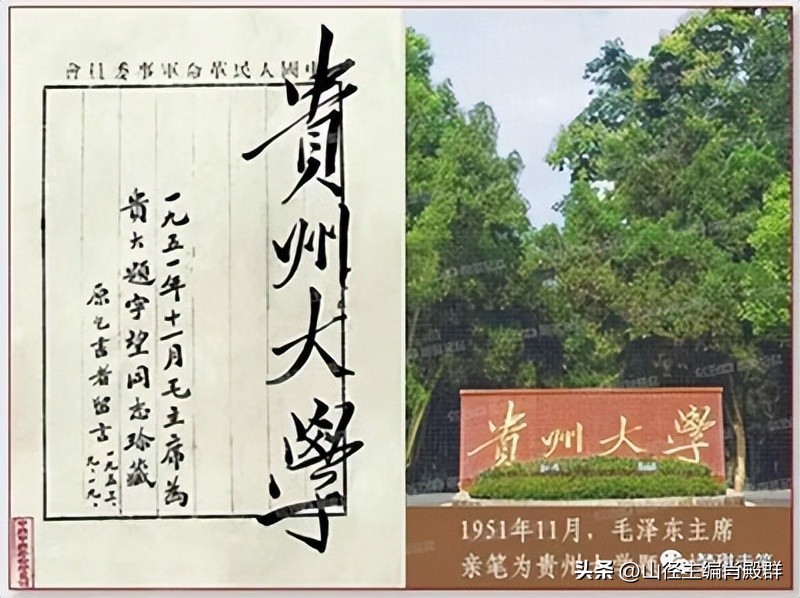 中國人民革命軍事委員會
貴州大學
一九五一年十一月毛主席为
貴大題字望同志珍藏
原乞書者留言
貴州大學
1951年11月，毛泽东主席
亲笔为贵州大学题
头条 @山径主编肖殿群